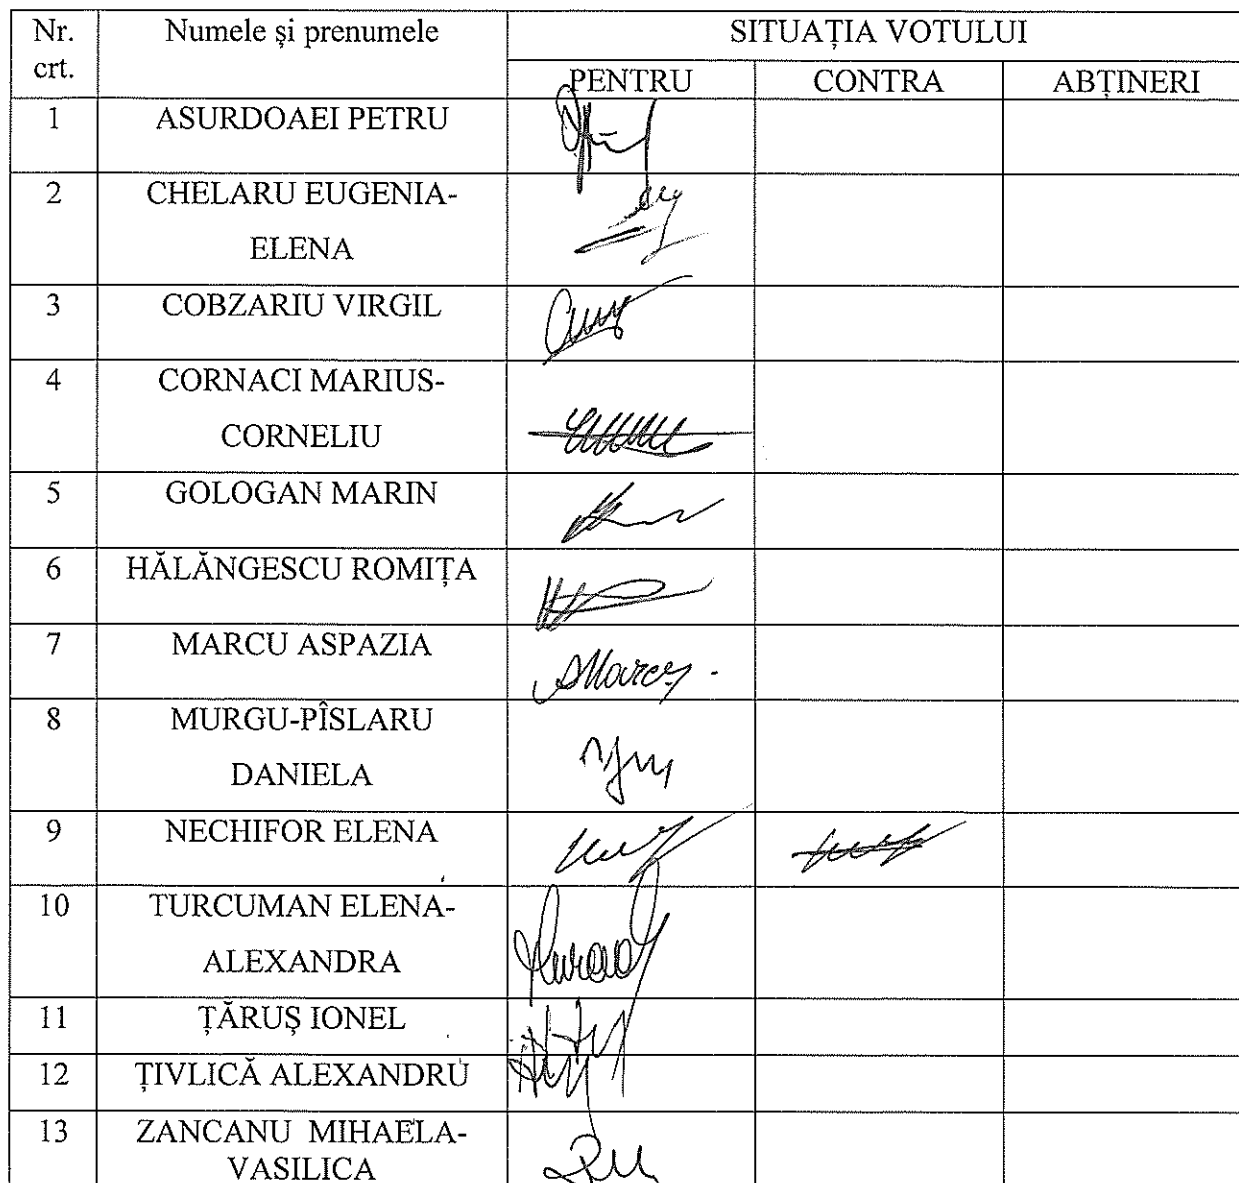 Nr. crt.
Numele și prenumele
SITUAȚIA VOTULUI
PENTRU
CONTRA
ABȚINERI
1
ASURDOAEI PETRU
2
CHELARU EUGENIA-
ELENA
3
COBZARIU VIRGIL
4
CORNACI MARIUS-
CORNELIU
5
GOLOGAN MARIN
6
HĂLĂNGESCU ROMIȚA
7
MARCU ASPAZIA
8
MURGU-PÎSLARU
DANIELA
9
NECHIFOR ELENA
10
TURCUMAN ELENA-
ALEXANDRA
11
ȚĂRUȘ IONEL
12
ȚIVLICĂ ALEXANDRU
13
ZANCANU MIHAELA-
VASILICA